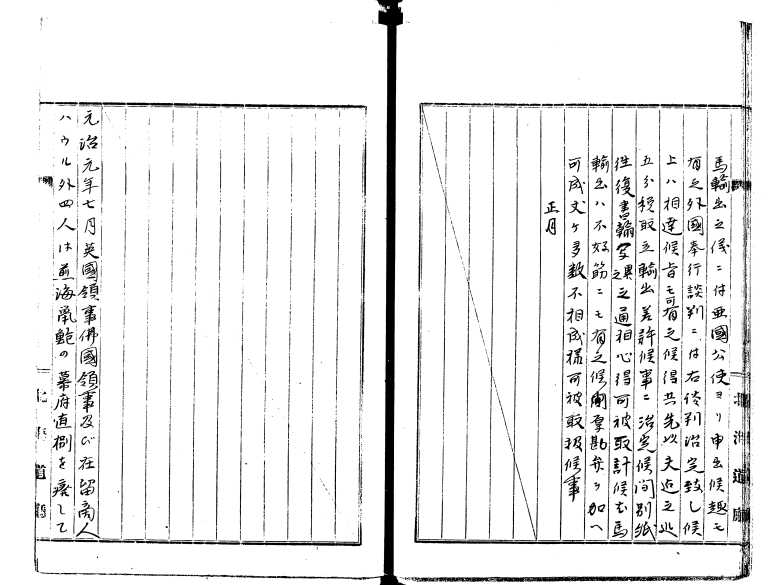 馬輸出之儀ニ付亜國公使ヨリ申出候趣モ
有之外國奉行談判ニ付右佟判治定致し候
上ハ相達候旨モ可有之候得共先以夫迄之処
五分税取立輸出差許候事ニ治定候间別紙
往復書翰写異之通相心得可被取計候尤馬
輸出ハ不好筋ニモ有之候間厚勘弁ヲ加ヘ
可成丈ケ多数不相成様可被取扱候事
正月
元治元年七月英國領事佛國領事及び在留商人
ハウル外四人は煎海鼠鮑の幕府直捌を廃して
北海道廳